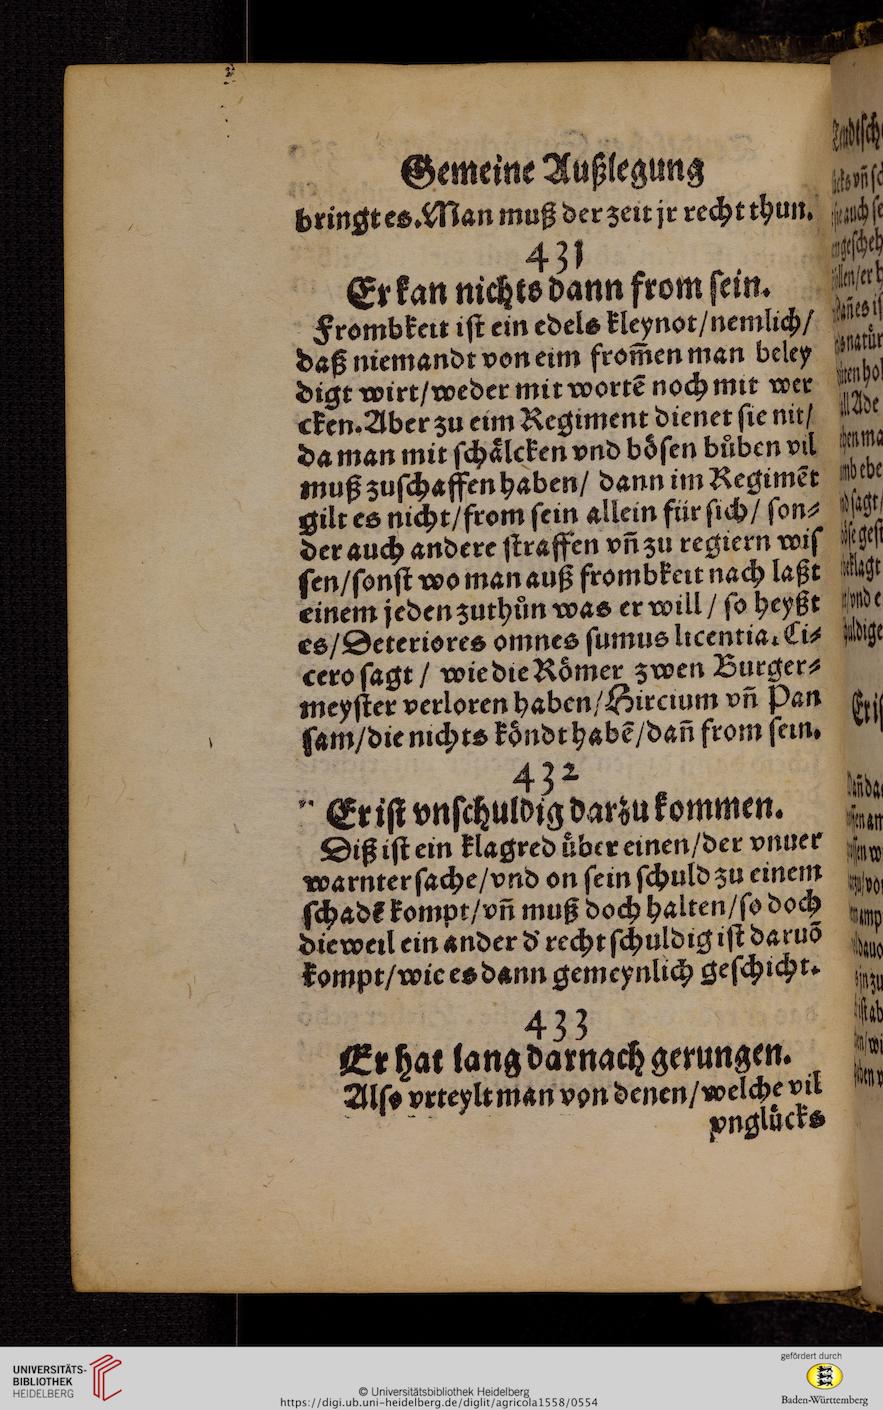 Gemeine Außlegung
bringt es. Man muß der zeit jr recht thun.
431
Er kan nichts dann from ſein.
Frombkeit iſt ein edels kleynot/nemlich/
daß niemandt von eim from̃en man beley
digt wirt/weder mit wortẽ noch mit wer
cken. Aber zu eim Regiment dienet ſie nit/
da man mit ſchaͤlcken vnd boͤſen buͦben vil
muß zuſchaffen haben/ dann im Regimẽt
gilt es nicht/from ſein allein für ſich/ ſon⸗
der auch andere ſtraffen vñ zu regiern wiſ
ſen/ſonſt wo man auß frombkeit nach laßt
einem jeden zuthuͦn was er will / ſo heyßt
es/Deteriores omnes ſumus licentia. Ci⸗
cero ſagt / wie die Roͤmer zwen Burger⸗
meyſter verloren haben/Hircium vñ Pan
ſam/die nichts koͤndt habẽ/dañ from ſein.
432
Er iſt vnſchuldig darzu kommen.
Diß iſt ein klagred uͤber einen/der vnuer
warnter ſache/vnd on ſein ſchuld zu einem
ſchadẽ kompt/vñ muß doch halten/ſo doch
dieweil ein ander d' recht ſchuldig iſt daruõ
kompt/wie es dann gemeynlich geſchicht.
433
Er hat lang darnach gerungen.
Alſo vrteylt man von denen/welche vil
vngluͤcks
UNIVERSITÄTS-
BIBLIOTHEK
HEIDELBERG
© Universitätsbibliothek Heidelberg
https://digi.ub.uni-heidelberg.de/diglit/agricola1558/0554
gefördert durch
Baden-Württemberg